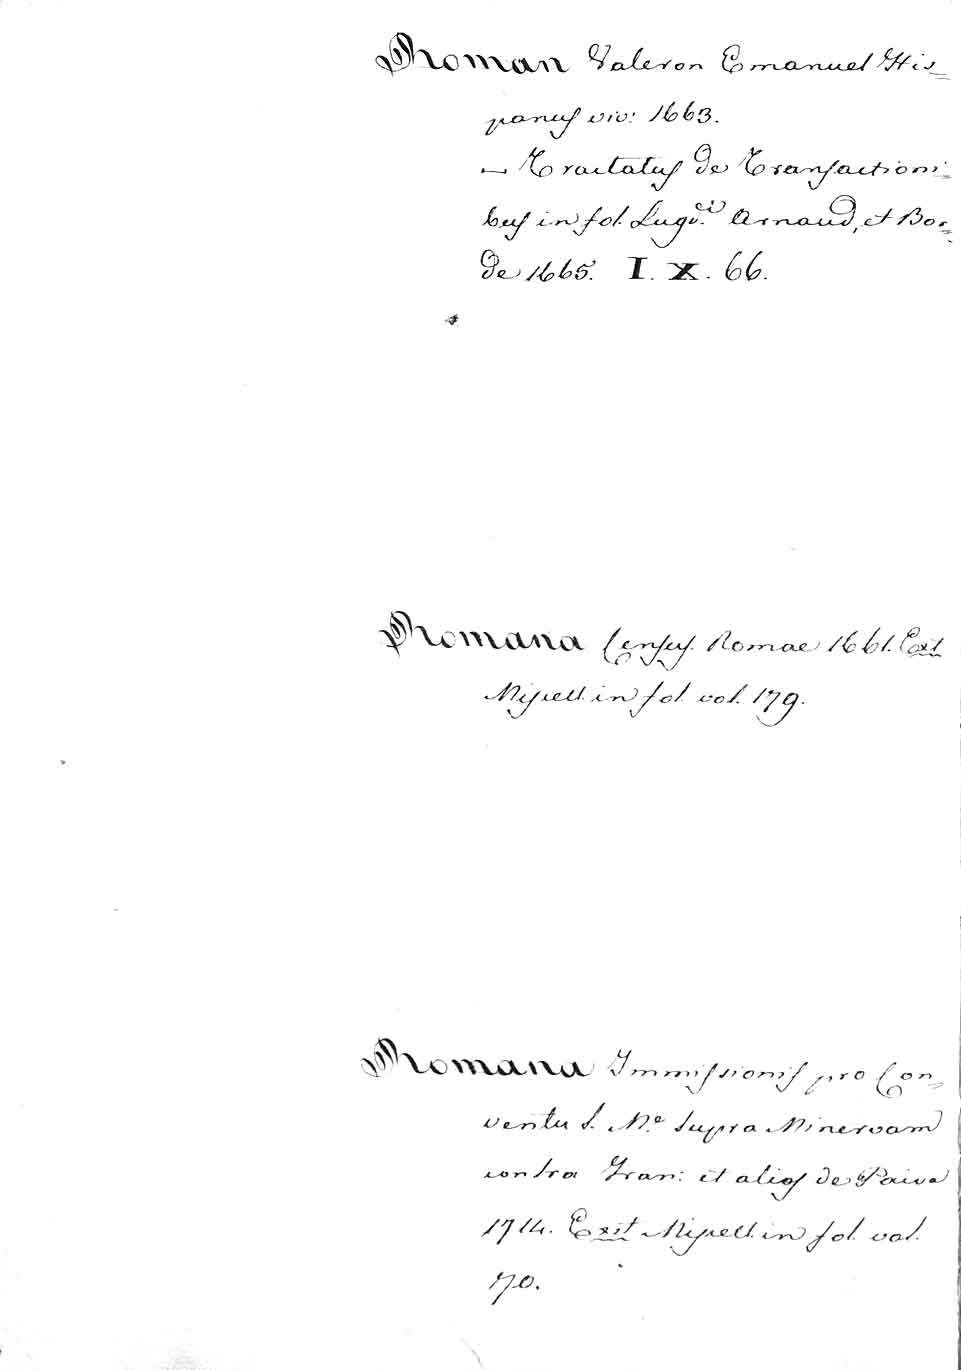 Roman Valeron Emanuel His-
panus viv: 1663.
— Tractatus de Transactioni-
bus in fol. Lugd.ni Arnaud, et Bor-
de 1665. I. X. 66.
Romana Census. Romae 1661. Exst
Miscell. in fol. vol. 179.
Romana Immissionis pro Con-
ventu S. M.e supra Minervam
contra Fran: et alios de Paiva
1714. Exst Miscell. in fol. vol.
70.